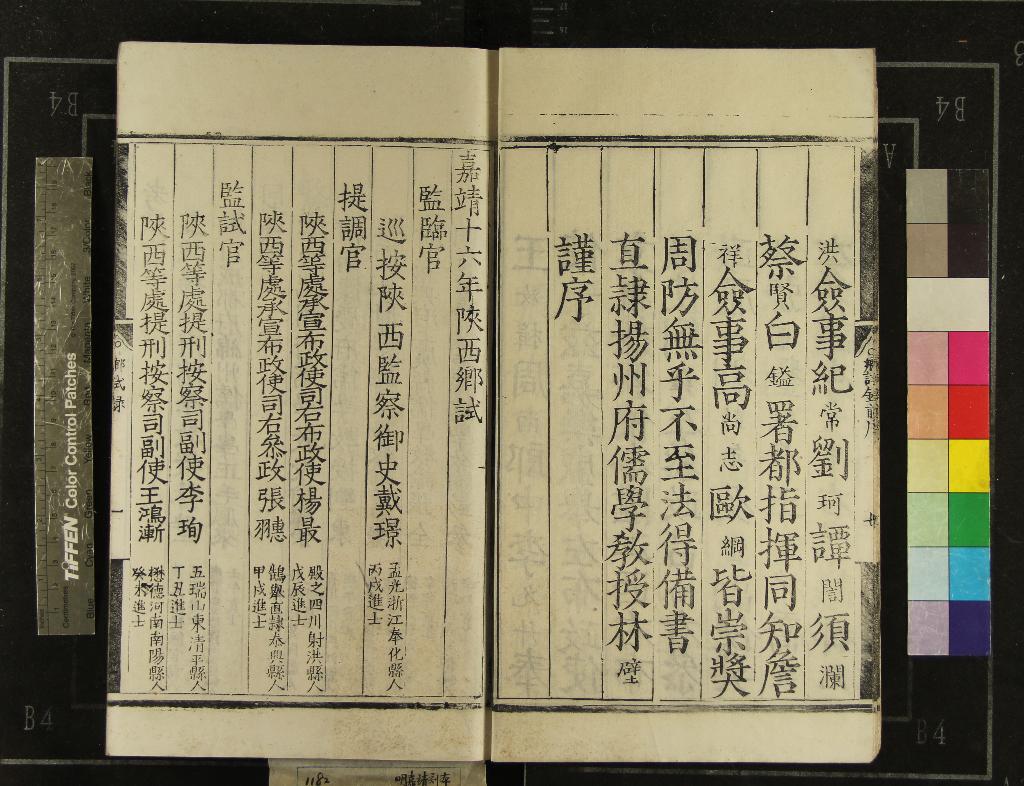 洪僉事紀常劉珂譚誾須瀾
蔡賢白鎰署都指揮同知詹
祥僉事高尚志歐綱皆崇獎
周防無乎不至法得備書
直隷揚州府儒學教授林壁
謹序
嘉靖十六年陝西鄉試
監臨官
巡按陝西監察御史戴璟
孟光浙江奉化縣人
丙戌進士
提調官
陝西等處承宣布政使司右布政使楊最
殿之四川射洪縣人
戊辰進士
陝西等處承宣布政使司右叅政張䎖
鶴舉直隷泰興縣人
甲戌進士
監試官
陝西等處提刑按察司副使李珣
五瑞山東清平縣人
丁丑進士
陝西等處提刑按察司副使王鴻漸
懋德河南南陽縣人
癸未進士
鄉試錄
一
TIFFEN Color Control Patches
B4
B4
B4
B4
A
1182
明嘉靖刻本